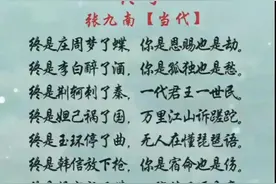 张九南【当代】
终是庄周梦了蝶，你是恩赐也是劫。
终是李白醉了酒，你是孤独也是愁。
终是荆轲刺了秦，一代君王一世民。
终是妲己祸了国，万里江山诉蹉跎。
终是玉环停了曲，无人在懂琵琶语。
终是韩信放下枪，你是宿命也是伤。